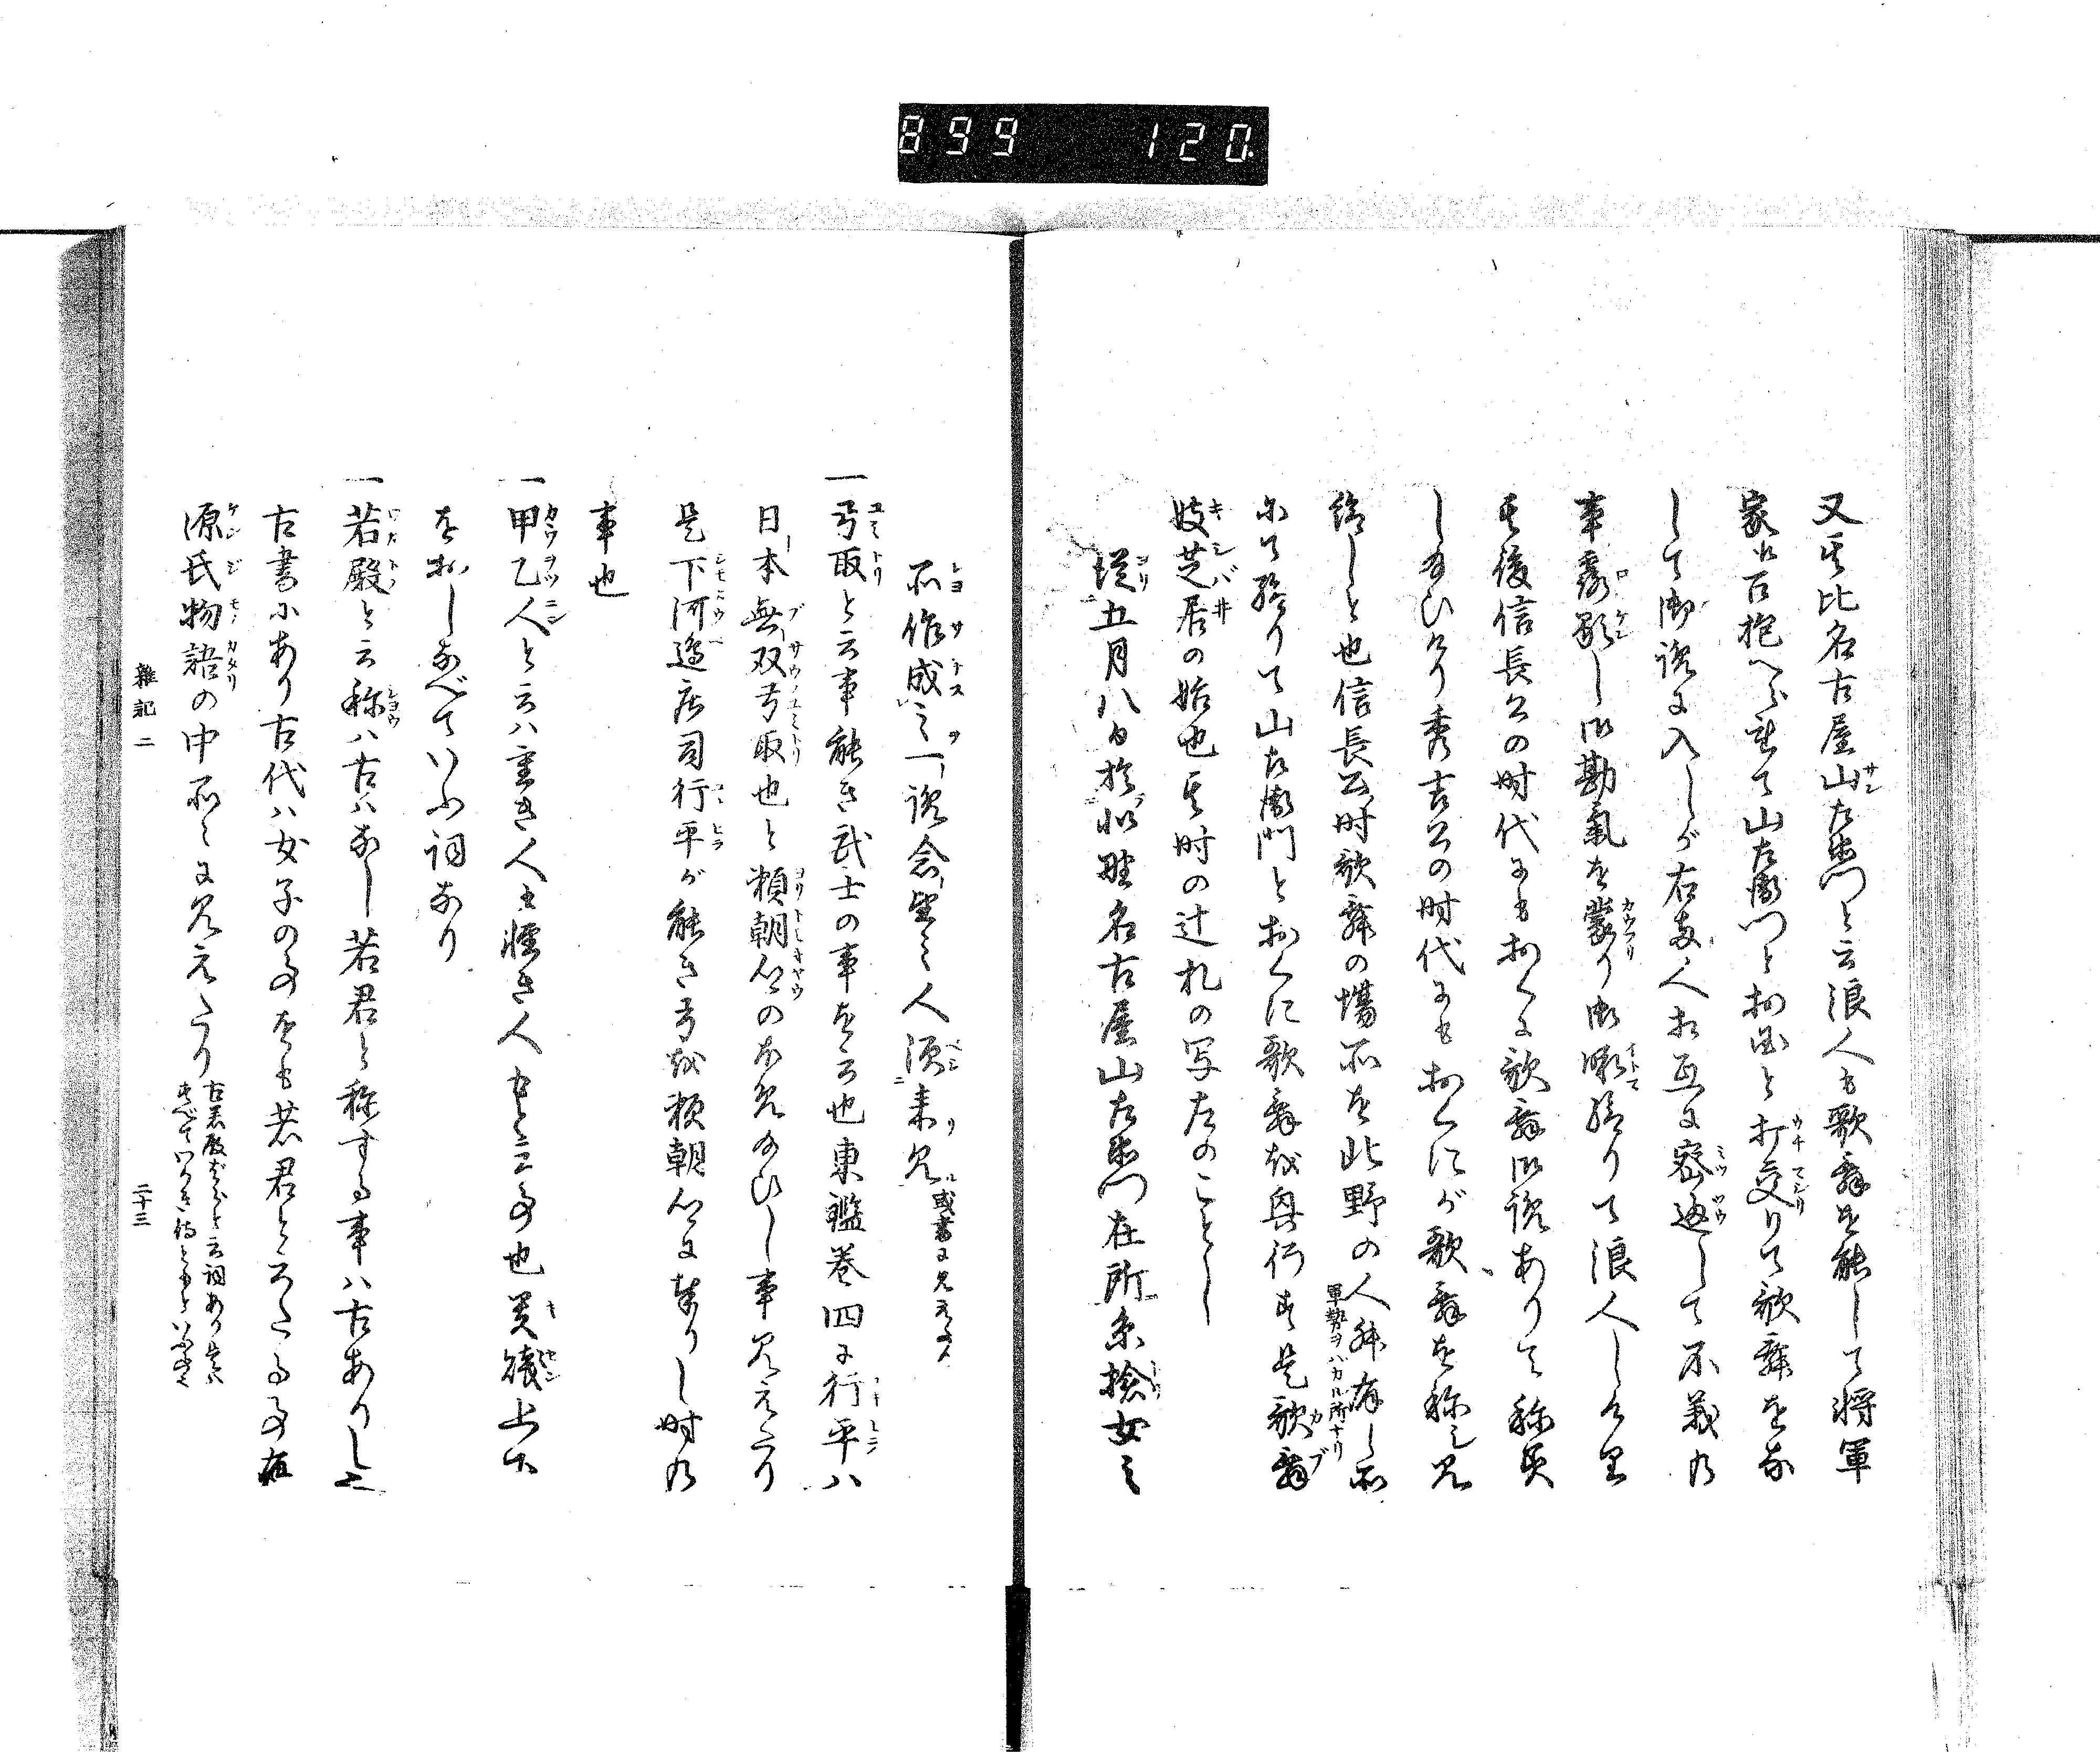 899 120
又其比名古屋山左衛門と云浪人も歌舞を能して将軍
家に召抱へられて山左衛門とお国と打交りて歌舞をな
して御説に入しが右両人相互に密通して不義の
事露顕し御勘気を蒙り御暇給りて浪人しける
其後信長公の時代にもおくに歌舞御説ありて称美
し給ひけり秀吉公の時代にもおくにが歌舞を称し
給しと也信長公時歌舞の場所を北野の人[拝]有し所
軍勢ヲハカル所ナリ
にて給りて山左衛門とおくに歌舞を興行す是歌舞
妓芝居の始也其時の辻札の写左のことし
従五月八日於北野名古屋山左衛門在所[糸]捻女之
所作成之説念望之人須来見或書に見えたり
一弓取と云事能き武士の事を云也東鑑巻四に行平ハ
日本無双弓取也と頼朝公のほめ給ひし事見えたり
是下河邊庄司行平が能き弓を頼朝公に奉りし時の
事也
一甲乙人と云ハ重き人も軽き人もと云事也貴賤上下
をおしなべていふ詞なり
一若殿と云称ハ古ハなし若君と称する事ハ古ありし也
古書にあり古代ハ女子の事をも若君と云たる事在
源氏物語の中所々に見えたり
古若殿ばらと云詞あり是ハ
すべてわかき侍ともといふ事也
雑記二 二十三